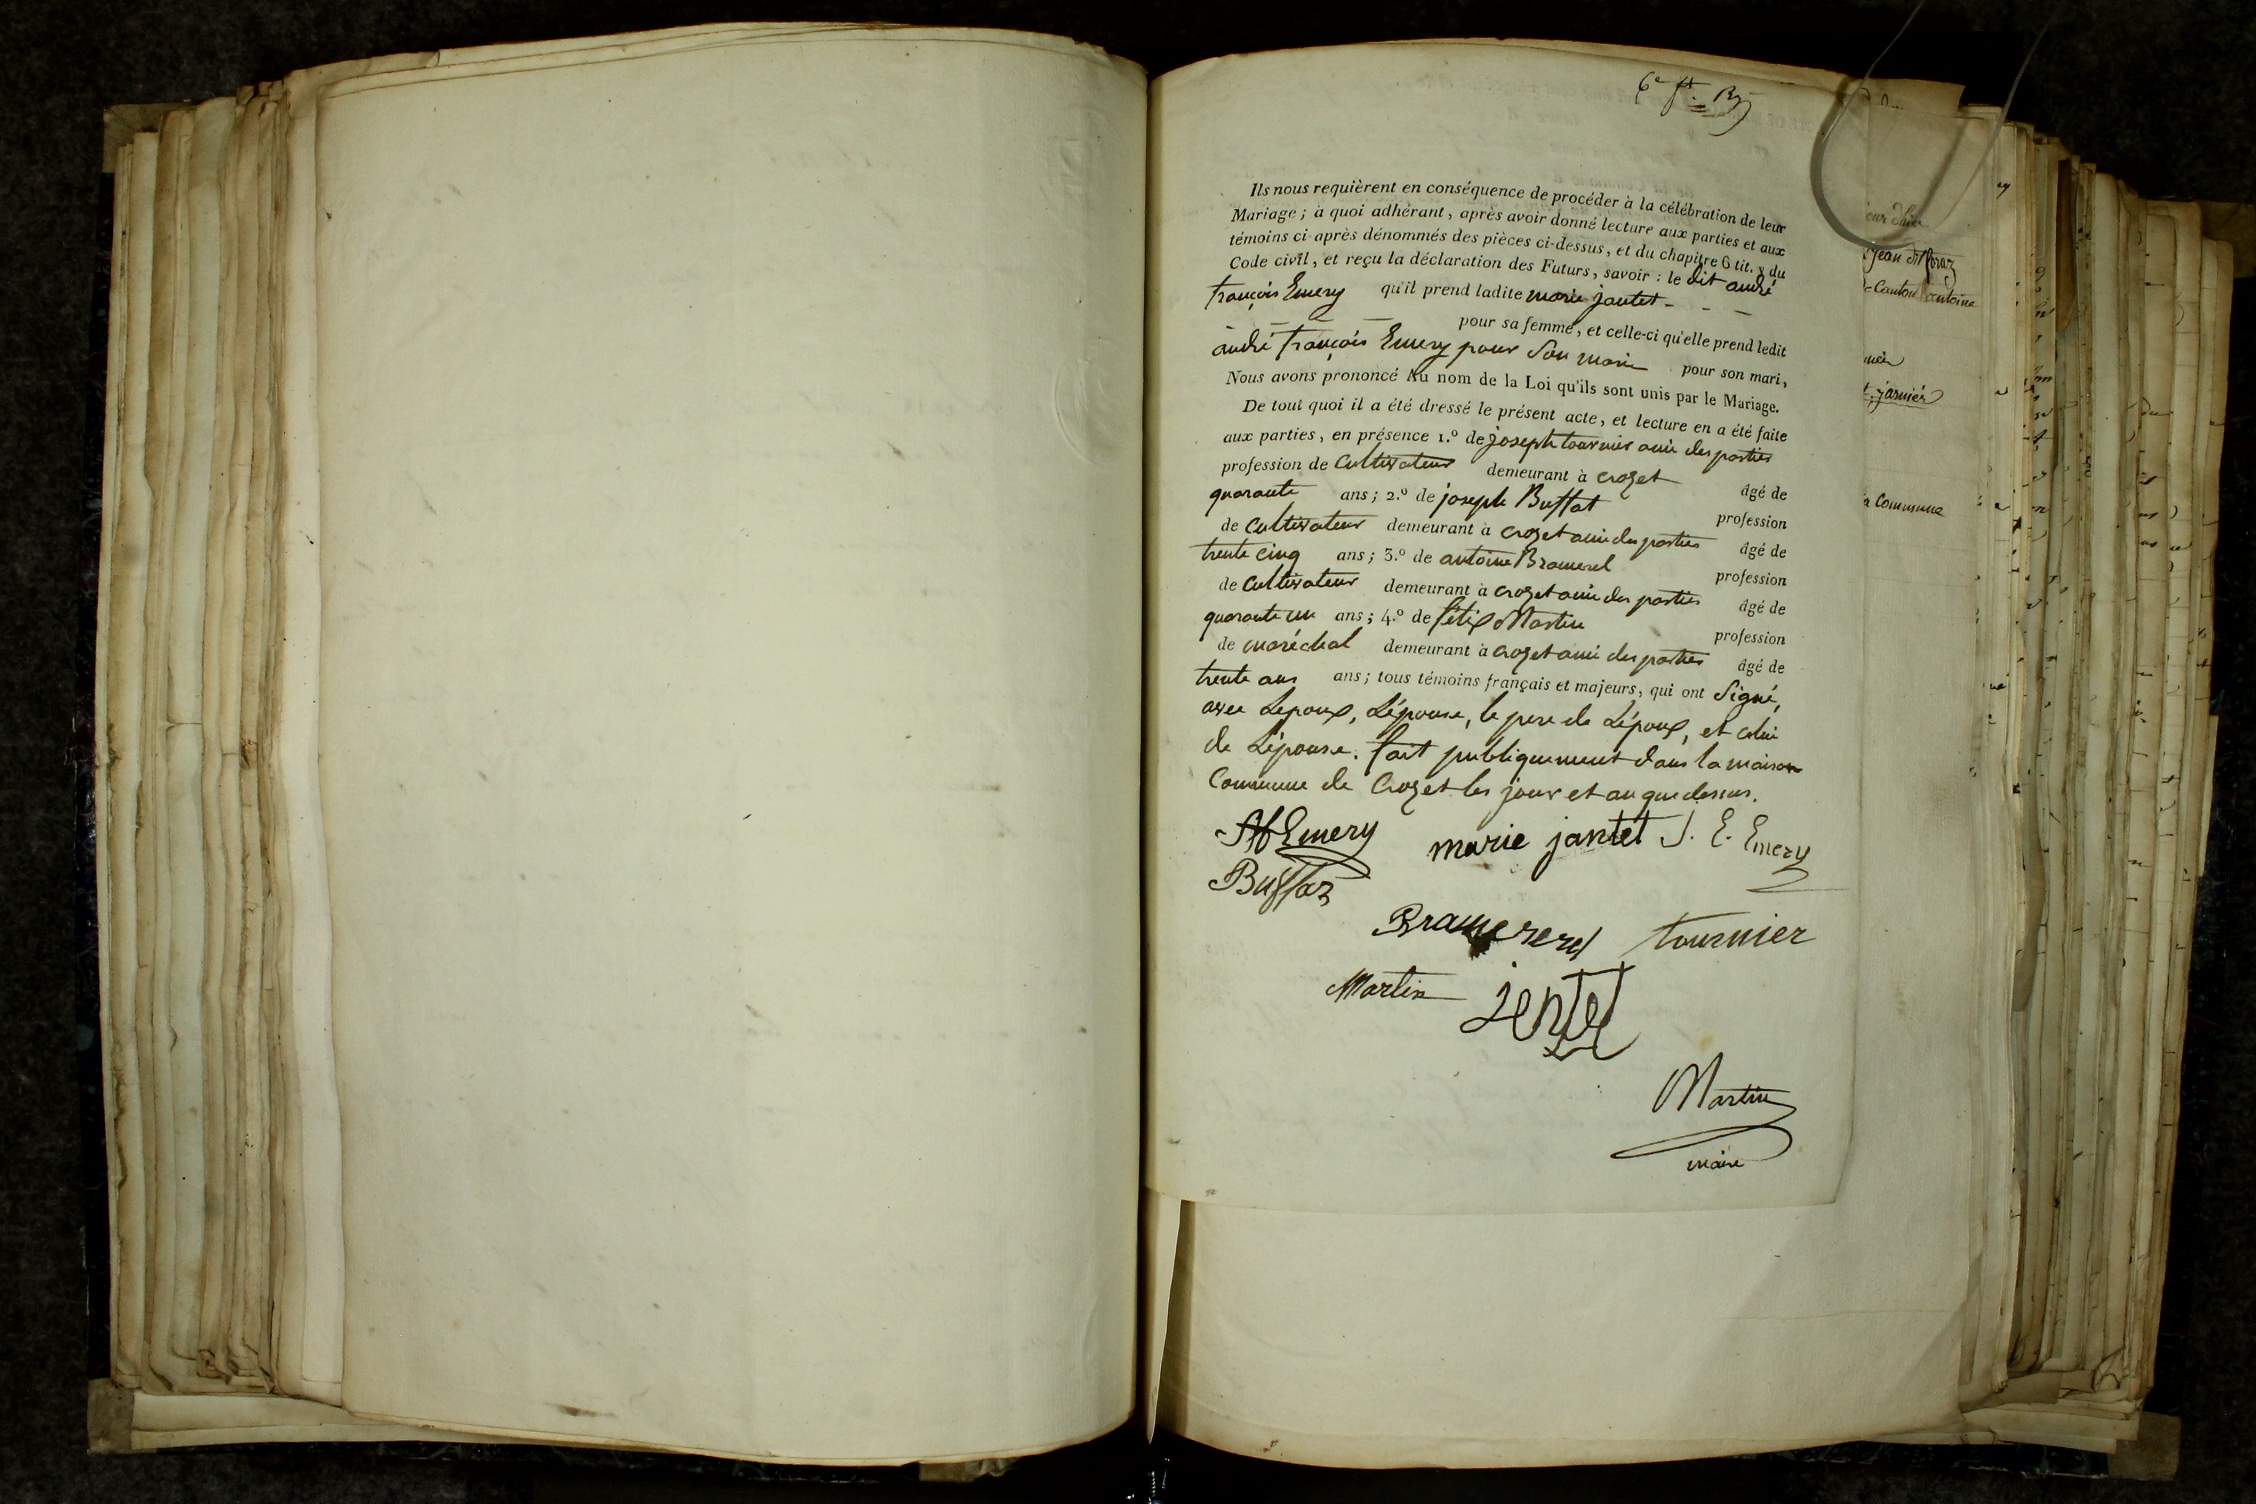 6e ft.
Ils nous requièrent en conséquence de procéder à la célébration de leur
Mariage; à quoi adhérant, après avoir donné lecture aux parties et aux
témoins ci-après dénommés des pièces ci-dessus, et du chapitre 6 tit. v du
Code civil, et reçu la déclaration des Futurs, savoir : le dit andré
françois Emery qu'il prend ladite marie jantet - - -
pour sa femme, et celle-ci qu'elle prend ledit
andré françois Emery pour Son mari pour son mari,
Nous avons prononcé Au nom de la Loi qu'ils sont unis par le Mariage.
De tout quoi il a été dressé le présent acte, et lecture en a été faite
aux parties, en présence 1.º de joseph tournier ami des parties
profession de Cultivateur demeurant à crozet âgé de
quarante ans; 2.º de joseph Buffat profession
de Cultivateur demeurant à crozet ami des parties âgé de
trente cinq ans; 3.º de antoine Bramerel profession
de Cultivateur demeurant à crozet ami des parties âgé de
quarante un ans; 4.º de félix Martin profession
de maréchal demeurant à crozet ami des parties âgé de
trente ans ans; tous témoins français et majeurs, qui ont Signé,
avec Lepoux, Lépouse, le pere de Lépoux, et celui
de Lépouse. fait publiquement dans la maison
Commune de Crozet les jour et an que dessus.
AfEmery marie jantet J. E. Emery
Buffaz
Bramererel tournier
Martin jentet
Martin
maire
jean dit
Canton antoine
jarnier
Commune